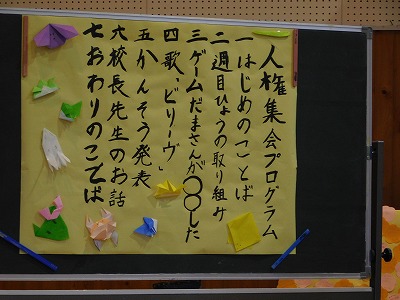 人権集会プログラム
一 はじめのことば
二 週目ひょうの取り組み
三 ゲームだまさんが〇〇した
四 歌「ビリーヴ」
五 かんそう発表
六 校長先生のお話
七 おわりのことば